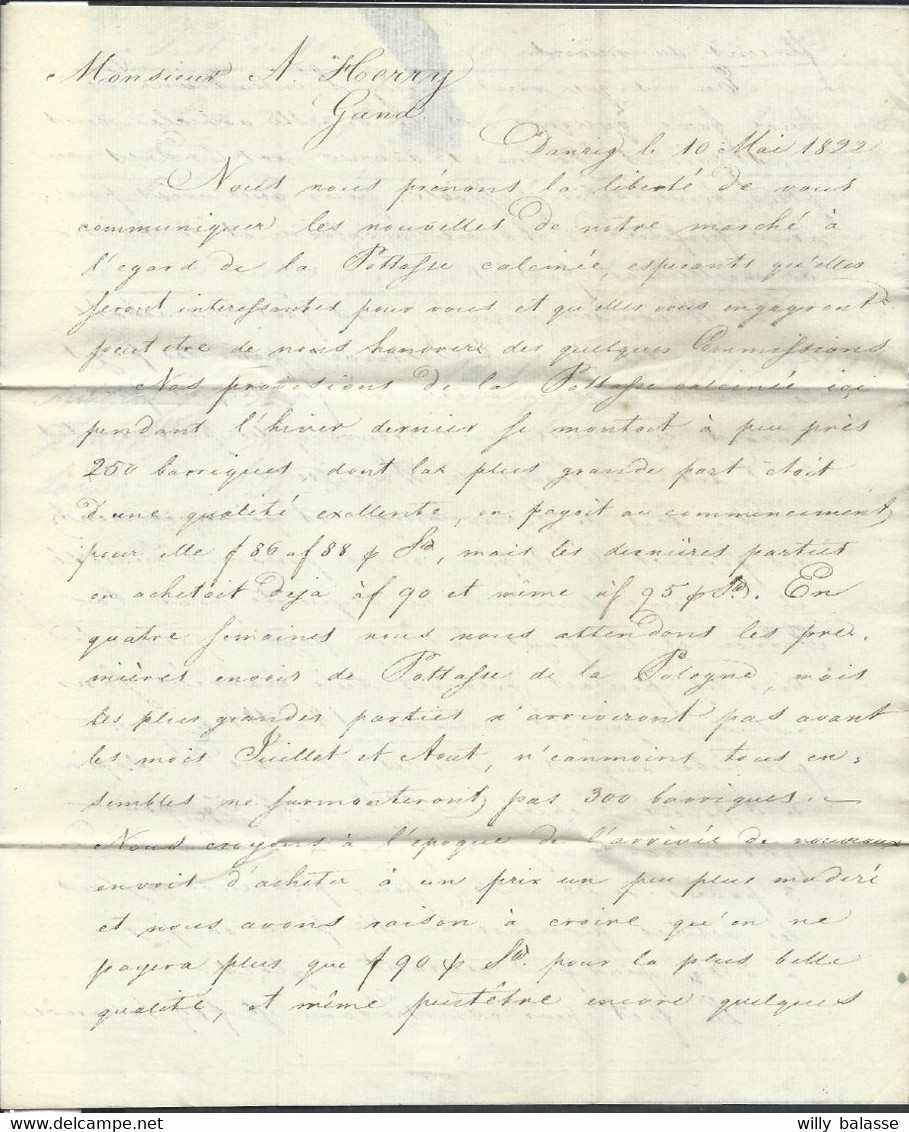 Monsieur A. Herry
Gand.
Danzig le 10 Mai 1822
Nous nous prénons la liberté de vous
communiquer les nouvelles de notre marché à
l'egard de la Pottasse calcinée, esperants qu'elles
seront interessantes pour vous et qu'elles vous engageront
peut etre de nous honorer des quelques Commissions
Nos provisions de la Pottasse calcinée içi
pendant l'hiver dernier se montoit à peu près
250 barriques dont la plus grande part etoit
d'une qualité exellente, on payoit au commencement
pour elle f 86 a f 88 p Sd, mais les dernières parties
on achetoit deja à f 90 et même à f 95 p Sd. En
quatre semaines nous nous attendons les pre-
mières envois de Pottasse de la Pologne, mais
les plus grandes parties n'arriveront pas avant
les mois Juillet et Aout, n'eanmoins tous en-
sembles ne surmonteront pas 300 barriques. —
Nous croyons à l'epoque de l'arrivée de nouveaux
envoit d'acheter à un prix un peu plus moderé
et nous avons raison à croire qu'on ne
payera plus que f 90 p Sd. pour la plus belle
qualité, et même peutêtre encore quelques
willy balasse